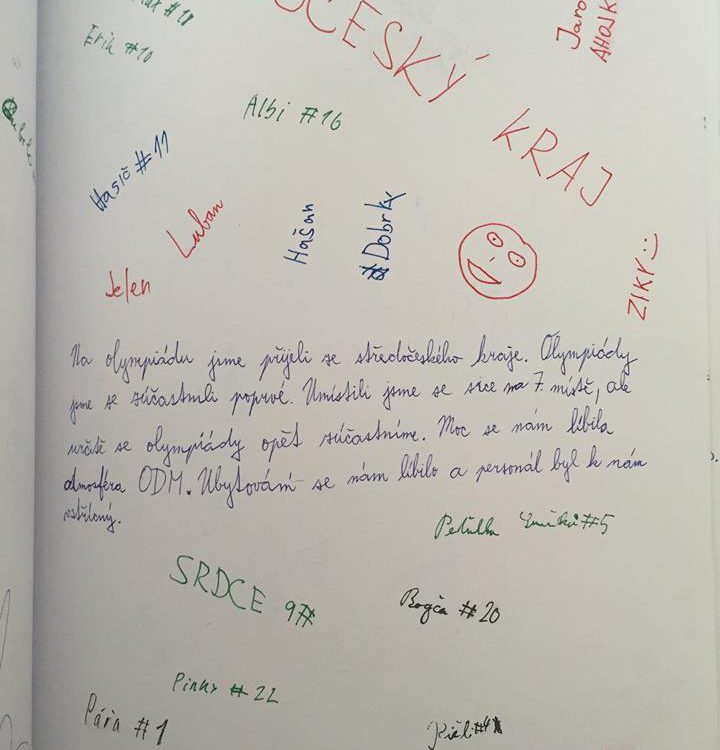 #11
Erik #10
OČESKÝ KRAJ
Jaro
AHOJK
Albi #16
Hasič #11
Luban
Hašan
#Dobrky
Jelen
ZIKY :)
Na olympiádu jsme přijeli se středočeského kraje. Olympiády
jsme se zúčastnili poprvé. Umístili jsme se sice na 7. místě, ale
určitě se olympiády opět zúčastníme. Moc se nám líbila
atmosféra ODM. Ubytování se nám líbilo a personál byl k nám
vstřícný.
Petulka #5
SRDCE 9#
Bogča #20
Pinky #22
Pára #1